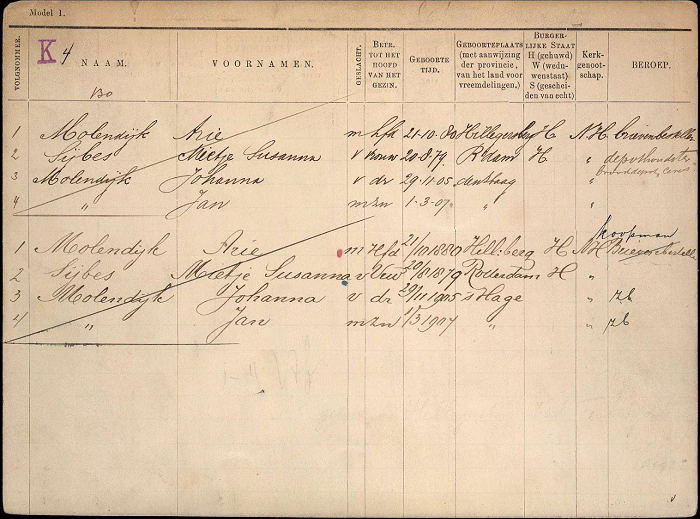 Model 1.
VOLGNOMMER. NAAM. VOORNAMEN. GESLACHT. BETR. TOT HET HOOFD VAN HET GEZIN. GEBOORTE TIJD. GEBOORTEPLAATS (met aanwijzing der provincie, van het land voor vreemdelingen.) BURGERLIJKE STAAT H (gehuwd) W (weduwenstaat) S (gescheiden van echt) Kerkgenootschap. BEROEP.
K 4
1 Molendijk Arie m hfd 21-10-80 Hillegersberg H NH brievenbesteller
2 Sijbes Mietje Susanna v vrouw 20-8-79. R'dam H " depothoudster
brooddepot,
3 Molendijk Johanna v dr 29-11-05. den Haag "
4 " Jan m zn 1-3-07. " "
koopman
1 Molendijk Arie m Hfd 21/10 1880 Hill:berg H NH Brievenbesteller
2 Sijbes Mietje Susanna v Vrw 20/8 1879 Rotterdam H "
3 Molendijk Johanna v dr 29/11 1905 's Hage " zb
4 " Jan m zn 1/3 1907 " " zb